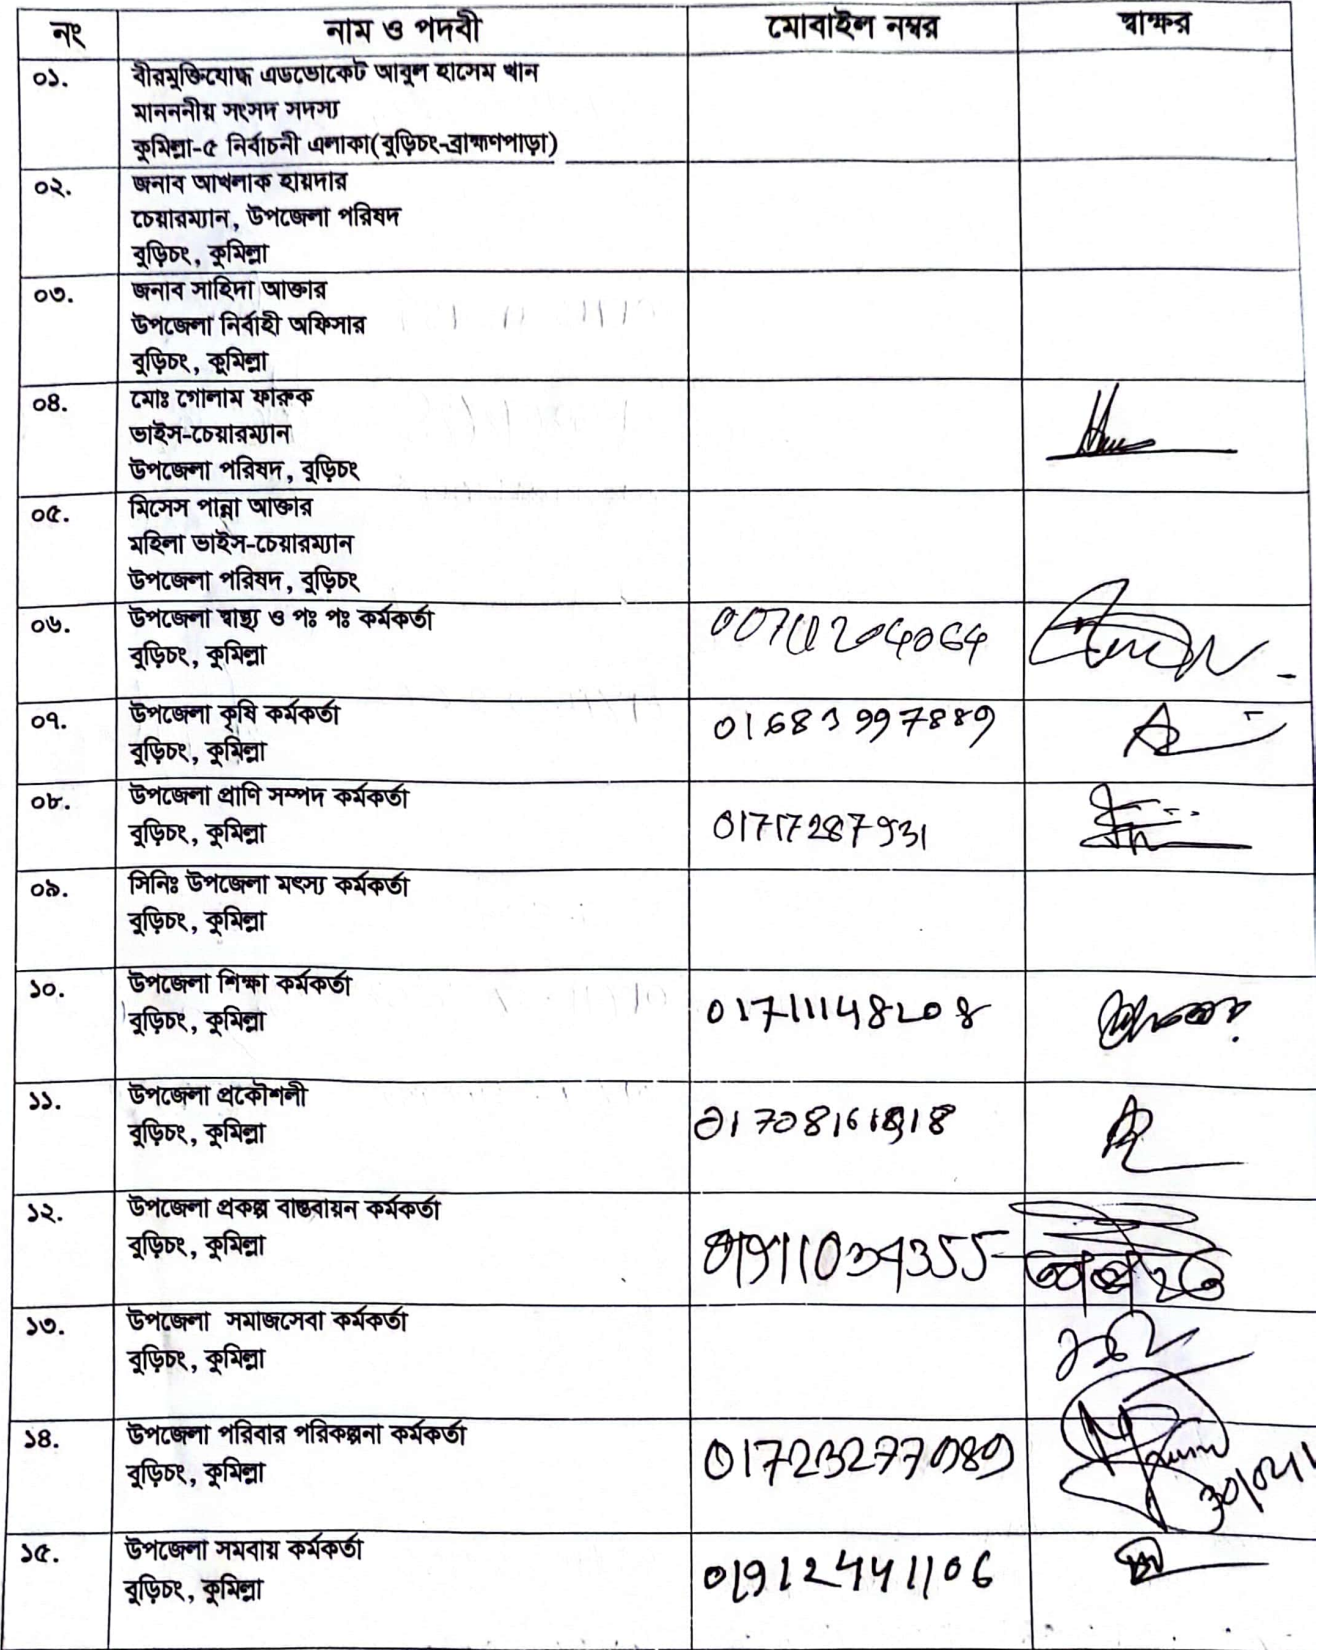 নং নাম ও পদবী মোবাইল নম্বর স্বাক্ষর
০১. বীরমুক্তিযোদ্ধ এডভোকেট আবুল হাসেম খান
মানননীয় সংসদ সদস্য
কুমিল্লা-৫ নির্বাচনী এলাকা(বুড়িচং-ব্রাহ্মণপাড়া)
০২. জনাব আখলাক হায়দার
চেয়ারম্যান, উপজেলা পরিষদ
বুড়িচং, কুমিল্লা
০৩. জনাব সাহিদা আক্তার
উপজেলা নির্বাহী অফিসার
বুড়িচং, কুমিল্লা
০৪. মোঃ গোলাম ফারুক
ভাইস-চেয়ারম্যান
উপজেলা পরিষদ, বুড়িচং
০৫. মিসেস পান্না আক্তার
মহিলা ভাইস-চেয়ারম্যান
উপজেলা পরিষদ, বুড়িচং
০৬. উপজেলা স্বাস্থ্য ও পঃ পঃ কর্মকর্তা
বুড়িচং, কুমিল্লা
০৭. উপজেলা কৃষি কর্মকর্তা 01683997889
বুড়িচং, কুমিল্লা
০৮. উপজেলা প্রাণি সম্পদ কর্মকর্তা
বুড়িচং, কুমিল্লা 01717287931
০৯. সিনিঃ উপজেলা মৎস্য কর্মকর্তা
বুড়িচং, কুমিল্লা
১০. উপজেলা শিক্ষা কর্মকর্তা
বুড়িচং, কুমিল্লা 01711148208
১১. উপজেলা প্রকৌশলী
বুড়িচং, কুমিল্লা
১২. উপজেলা প্রকল্প বাস্তবায়ন কর্মকর্তা
বুড়িচং, কুমিল্লা 01911034355
১৩. উপজেলা সমাজসেবা কর্মকর্তা
বুড়িচং, কুমিল্লা
১৪. উপজেলা পরিবার পরিকল্পনা কর্মকর্তা
বুড়িচং, কুমিল্লা
১৫. উপজেলা সমবায় কর্মকর্তা
বুড়িচং, কুমিল্লা 01912441106